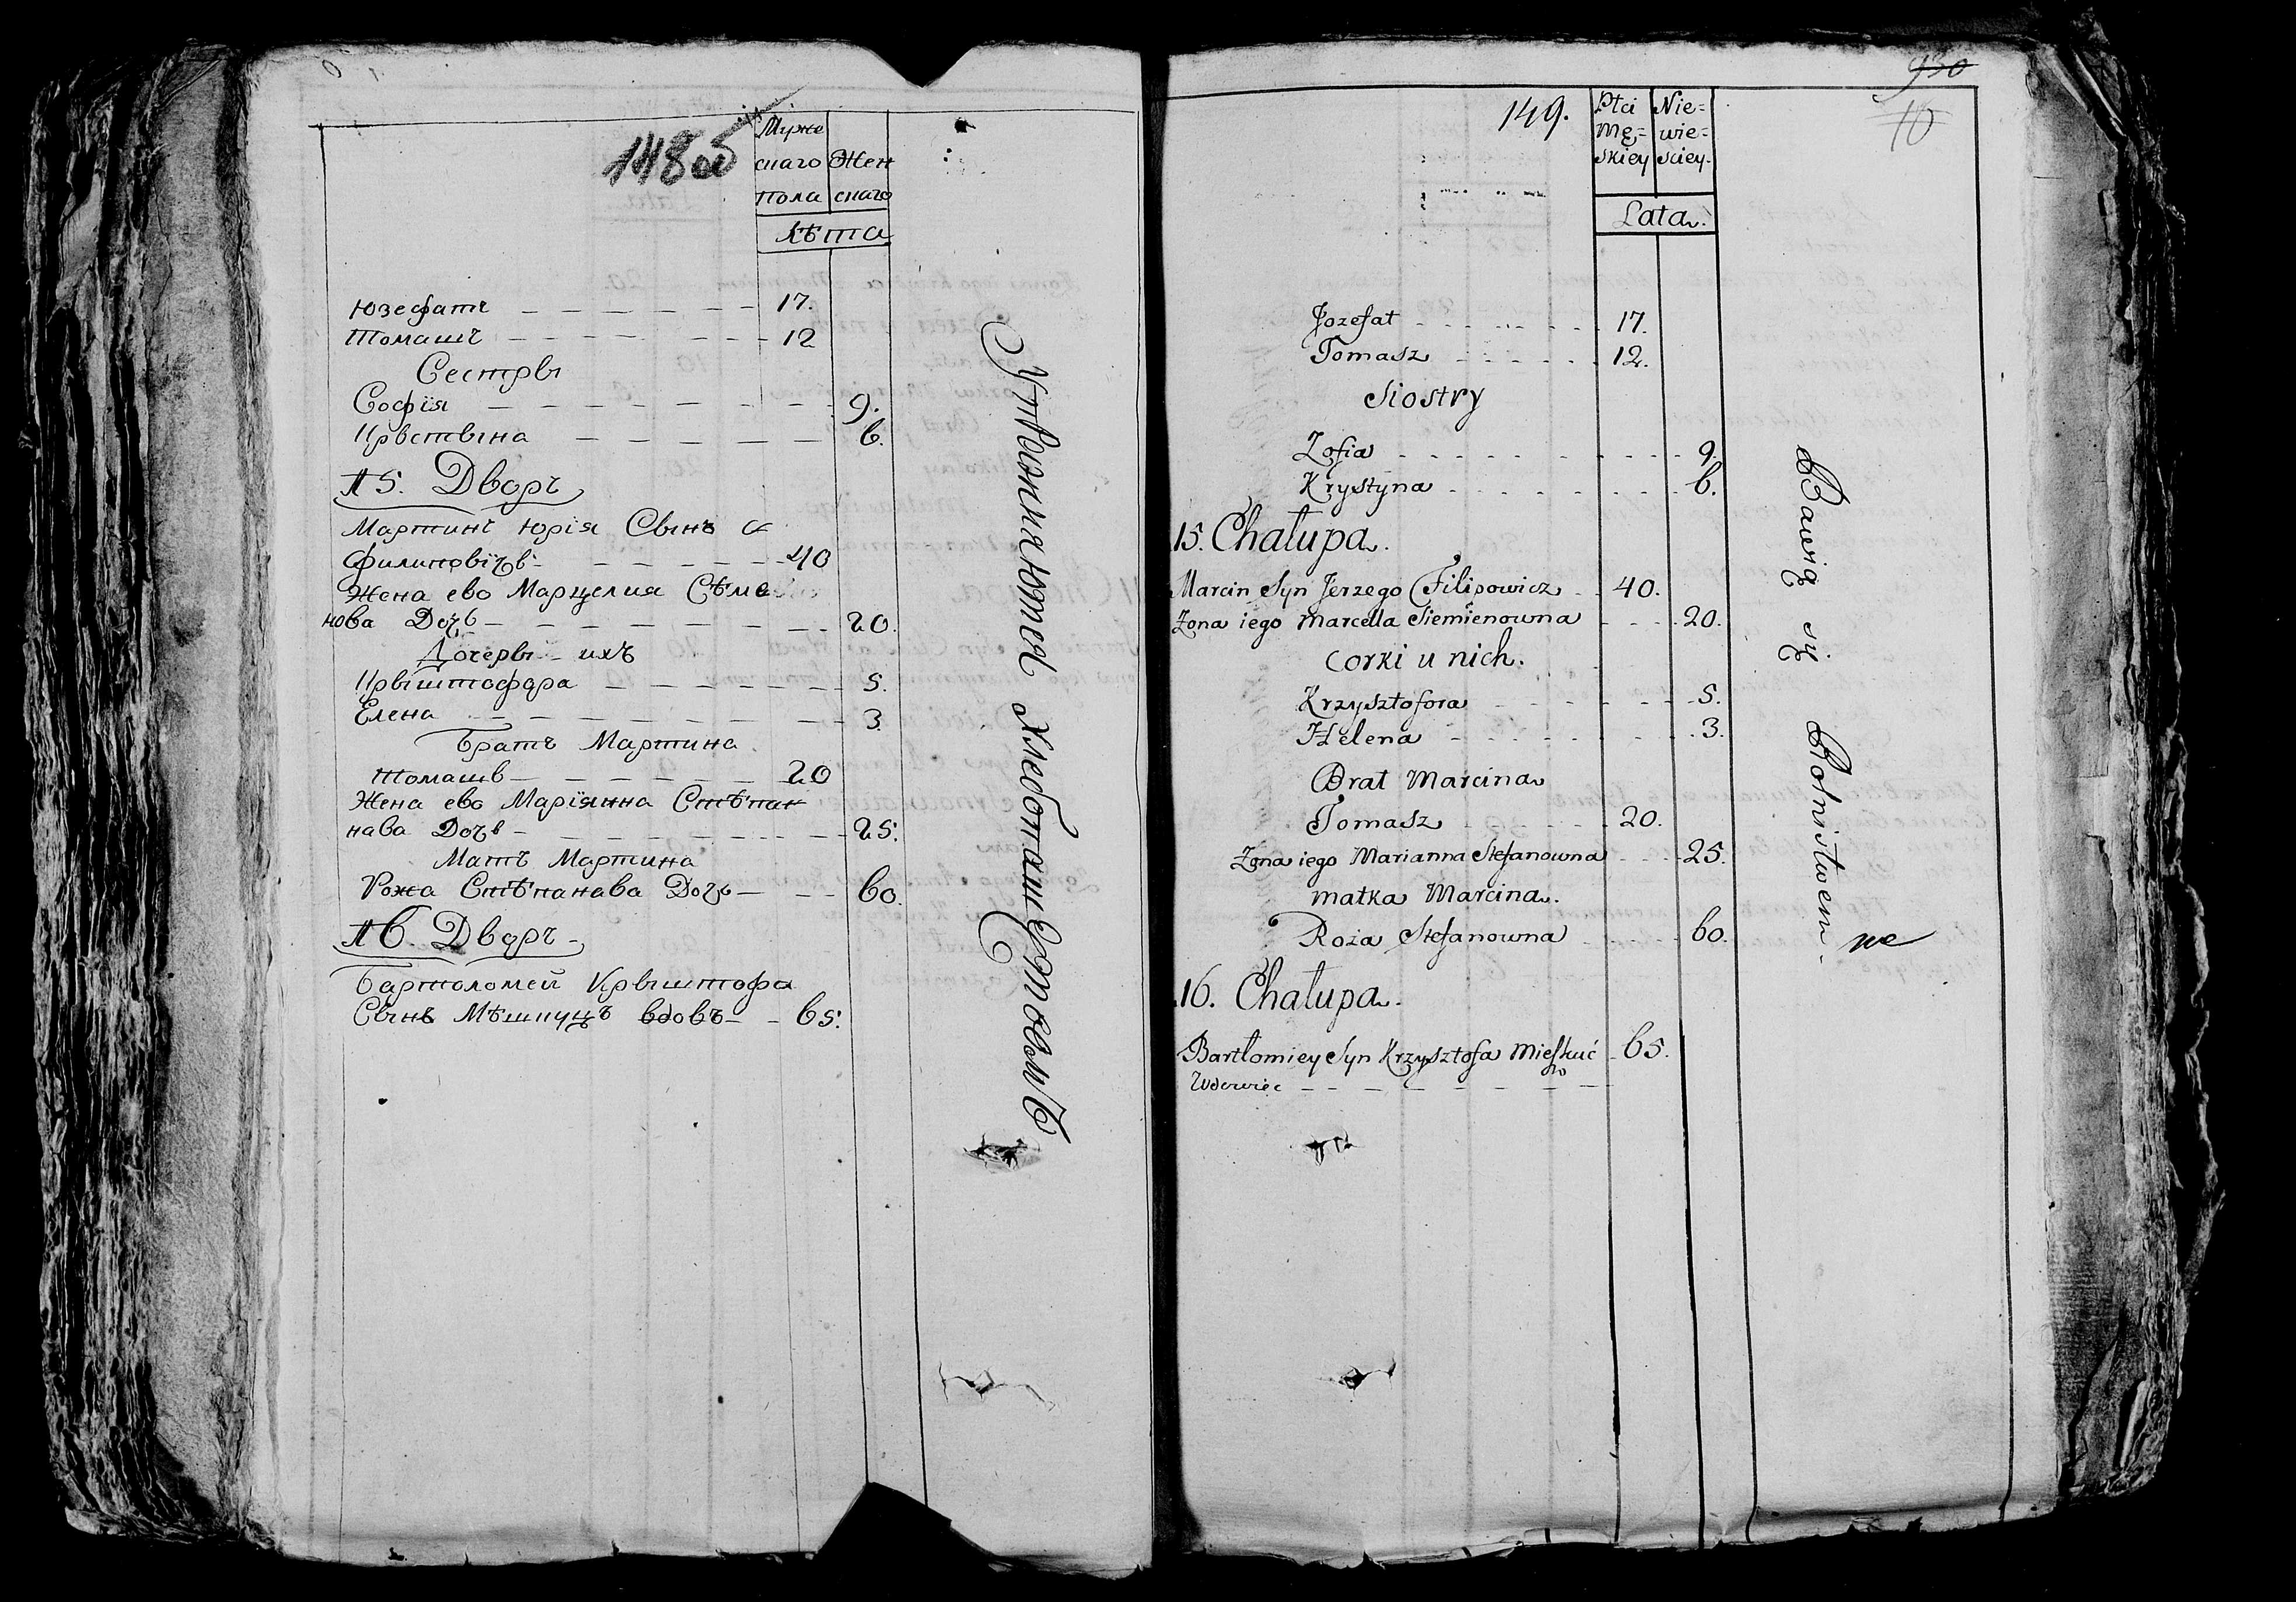 148 об
Муже
скаго Жен
пола скаго
лѣта
Юзефатъ — — — — — — 17.
Томашъ — — — — — — 12
Сестры
Софія — — — — — — — 9.
Крыстына — — — — — 6.
15. Дворъ
Мартинъ Юрія Сынъ
Филиповичъ — — — — — 40
Жена ево Марцелия Сѣме
нова Дочь — — — — — — 20.
Дочеры ихъ
Крыштофора — — — — — 5.
Елена — — — — — — — 3
Братъ Мартина
Томашъ — — — — — 20
Жена ево Маріянна Стѣпан
нава Дочь — — — — — — 25.
Мать Мартина
Рожа Стѣпанава Дочь — — — 60.
16. Дворъ
Бартоломей Крыштофа
Сынъ Мѣшкуцъ вдовъ — — 65.
Упражняются хлебопашествомъ
930
10
149.
Płci Nie=
Mę= wie=
skiey sciey.
Lata.
Jozefat - - - - - - 17.
Tomasz - - - - - - 12.
Siostry
Zofia - - - - - - - - 9.
Krystyna - - - - - - - 6.
15. Chałupa.
Marcin Syn Jerzego Filipowicz - - 40.
Zona iego Marcella Siemienowna - - - 20.
Corki u nich.
Krzysztofora - - - - - - 5.
Helena - - - - - - - - 3.
Brat Marcina
Tomasz - - - - - 20.
Zona iego Marianna Stefanowna - - - 25.
matka Marcina.
Roża Stefanowna - - - - - 60.
16. Chałupa.
Bartłomiey Syn Krzysztofa Mieszkuć - 65.
Wdowiec - - - - - - -
Bawią się Rolnistwem.